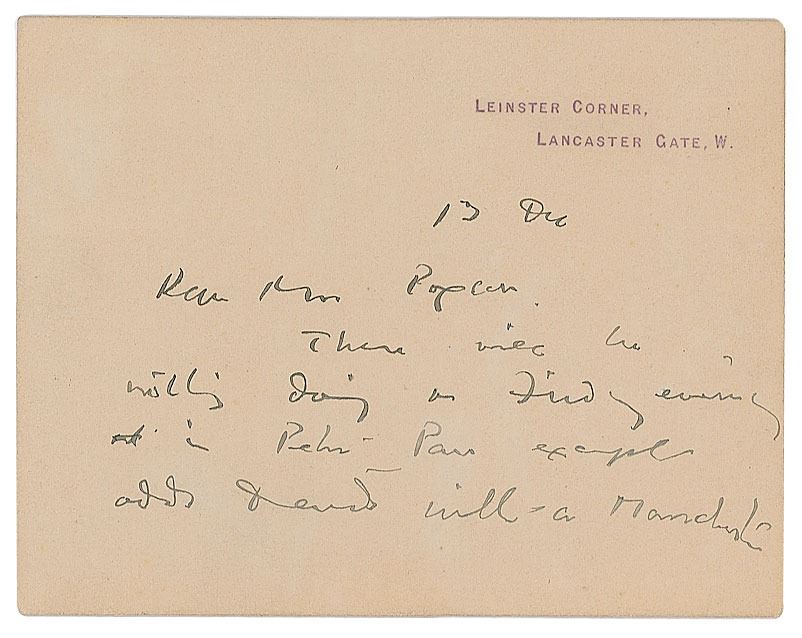 LEINSTER CORNER,
LANCASTER GATE, W.
13 Dec
Dear Miss
There will be
nothing doing on Friday evening
in Peter Pan except
odds &amp; ends with a Manchester